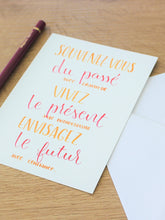 SOUVENEZ-VOUS
du passé
AVEC GRATITUDE
VIVEZ
le présent
AVEC ENTHOUSIASME
ENVISAGEZ
le futur
AVEC CONFIANCE